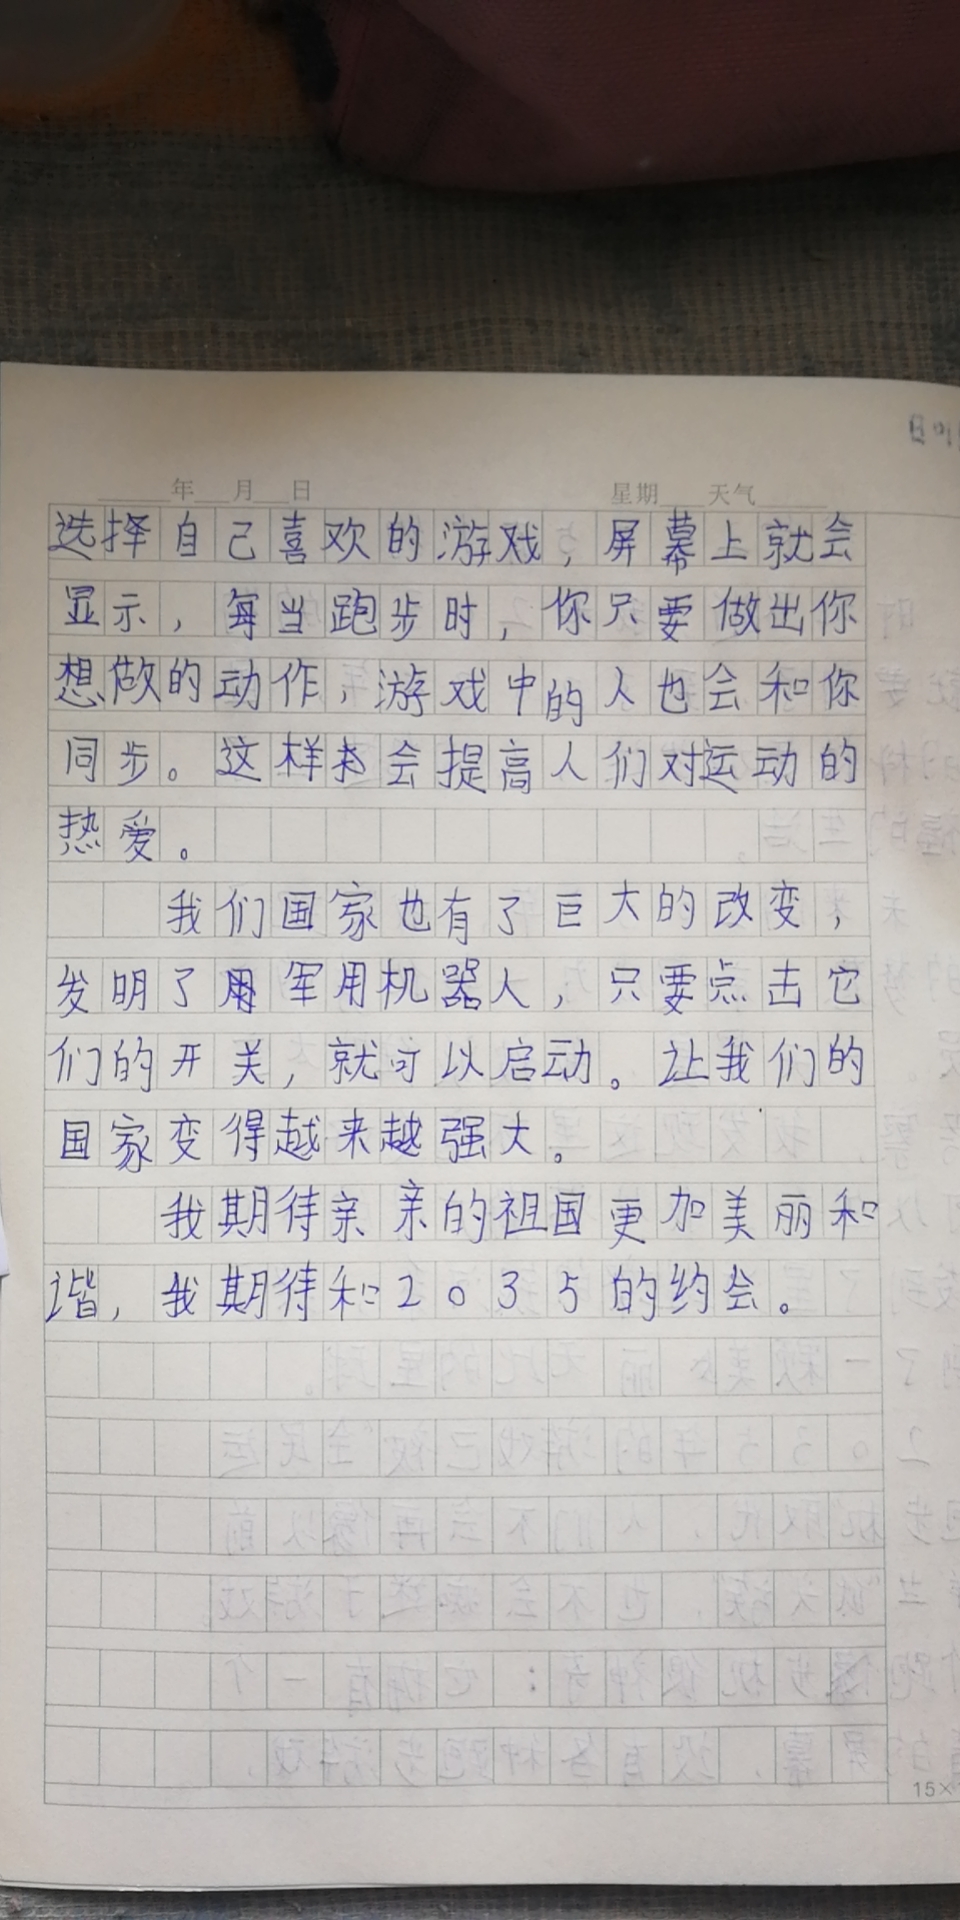 年 月 日 星期 天气
选择自己喜欢的游戏，屏幕上就会
显示，每当跑步时，你只要做出你
想做的动作，游戏中的人也会和你
同步。这样才会提高人们对运动的
热爱。
我们国家也有了巨大的改变，
发明了军用机器人，只要点击它
们的开关，就可以启动。让我们的
国家变得越来越强大。
我期待亲亲的祖国更加美丽和
谐，我期待和2035的约会。
15×